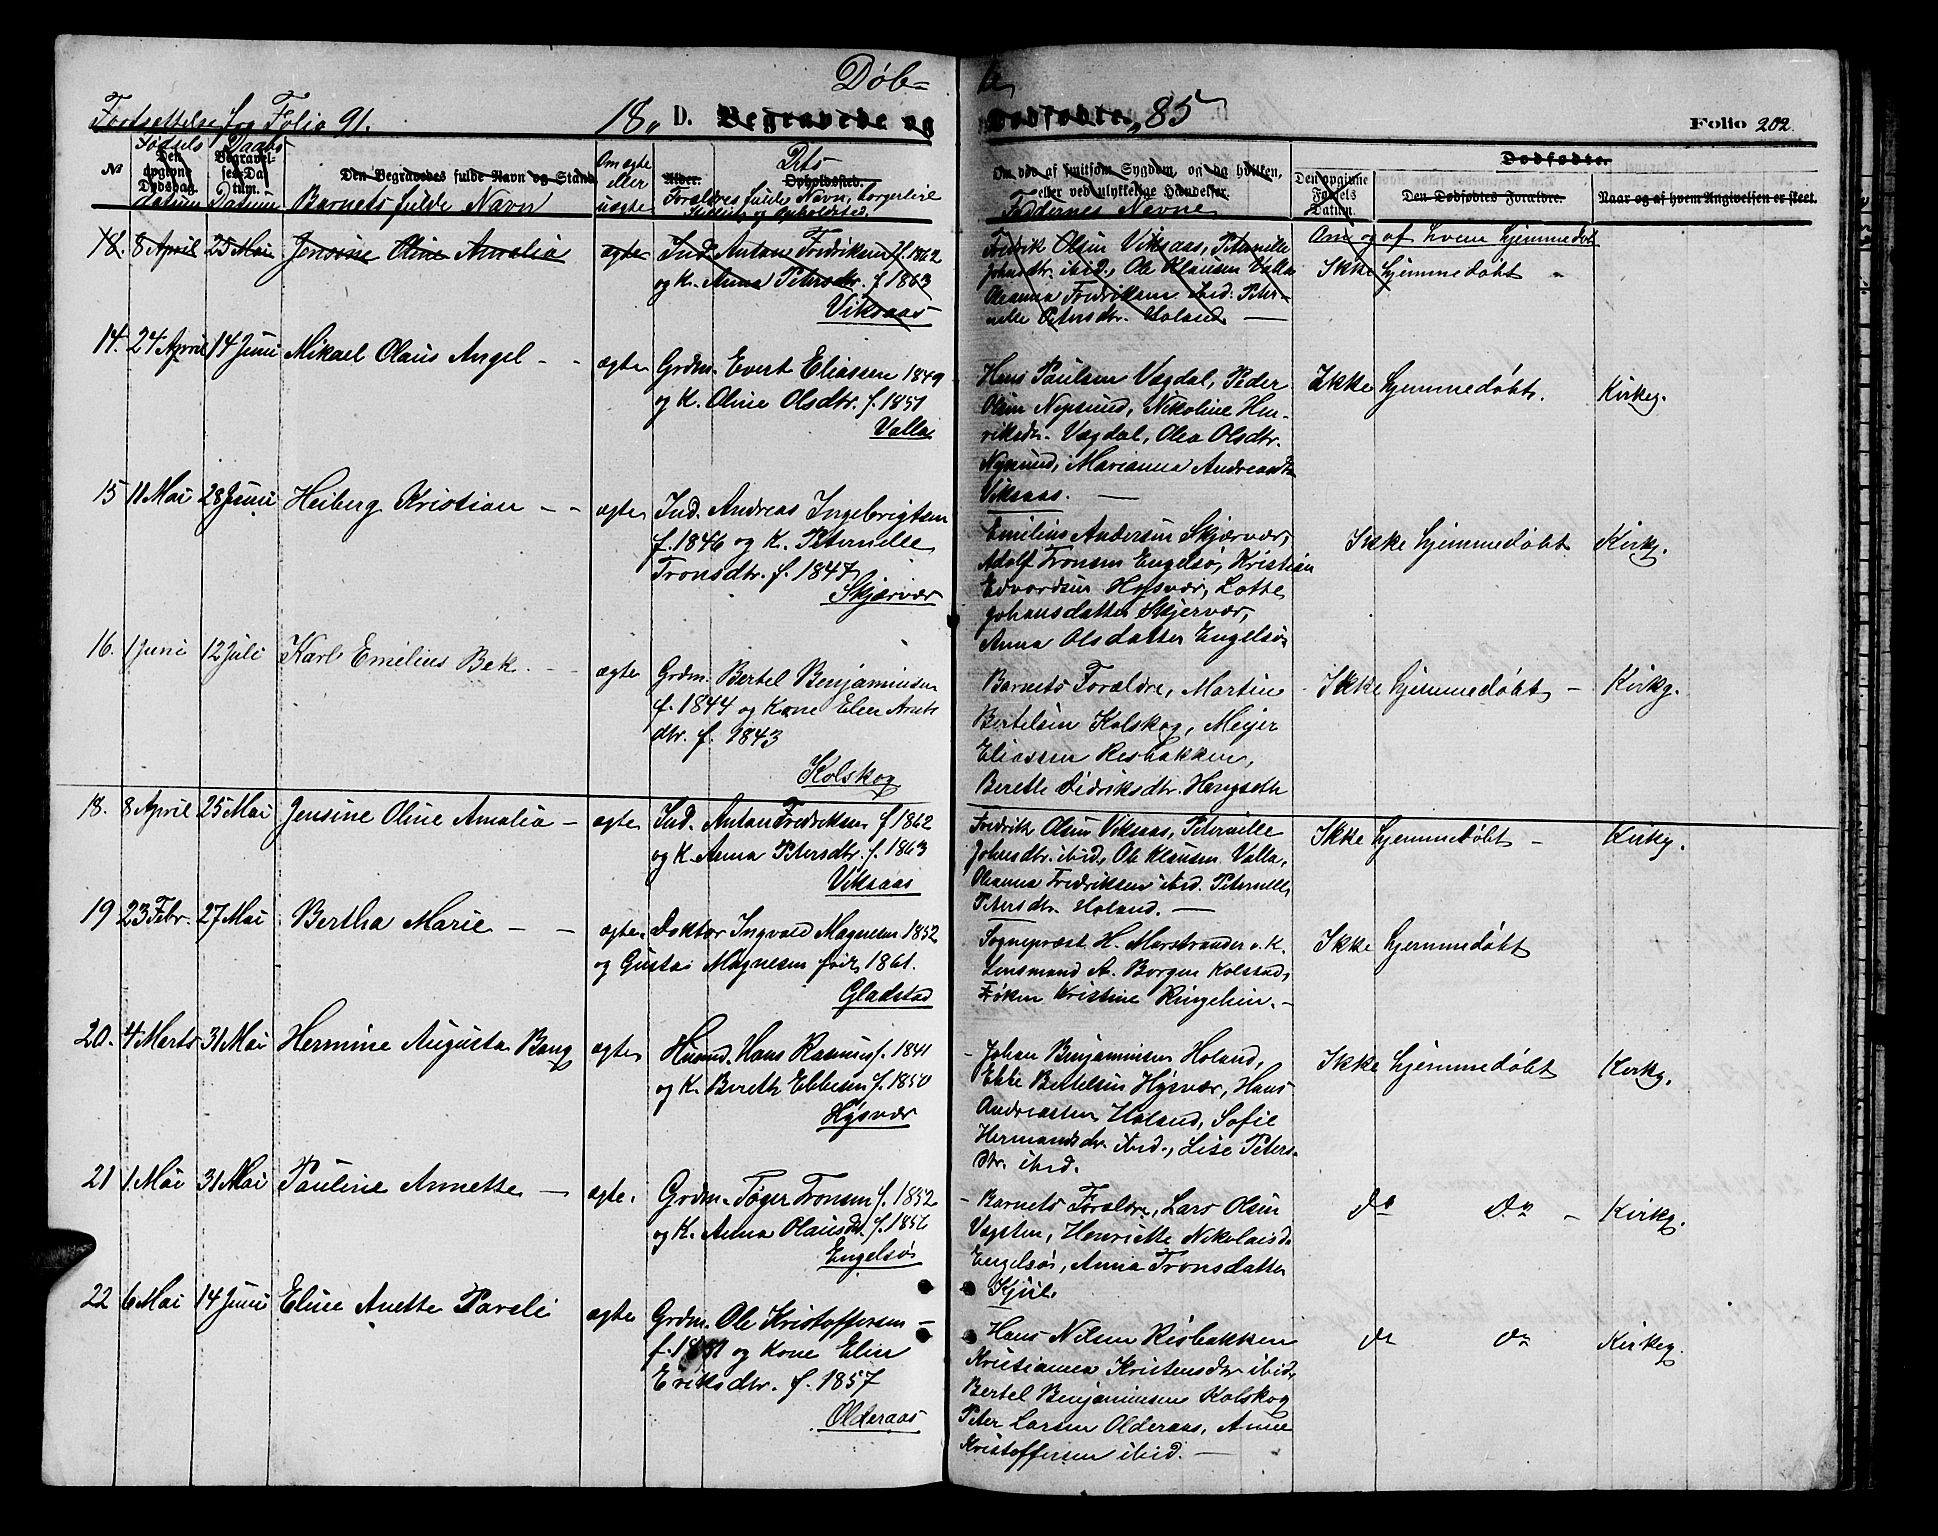 Døb- te
Fortsættelse fra Folio 91. 18„ D. Begravede og Dødfødte. „85 Folio 202.
Fødsels Daabs
No. Den opgivne Dødsdag. Begravelses-Datum. Den Begravedes fulde Navn og Stand. Om ægte Alder. Dets Opholdssted. Om død af smitsom Sygdom, og da hvilken, eller ved ulykkelige Hændelser. Den opgivne Fødsels Datum. Dødfødte. Den Dødfødtes Forældre. Naar og af hvem Angivelsen er skeet.
datum Datum Barnets fulde Navn eller uægte Forældres fulde Navn, borgerlige Stilling og Opholdsted Faddernes Navne
Om og af hvem hjemmedøbt
18. 8 April 25 Mai Jensine Oline Amalia ægte Ind. Anton Fredriksen f. 1862
og K. Anna Petersdtr. f 1863
Viksaas
Fredrik Olsen Viksaas, Peternille
Johnsdtr. ibid., Ole Klausen Valla
Oleanna Fredriksen ibid. Peter-
nille Petersdtr. Høland —
Ikke hjemmedøbt
14. 24 April 14 Juni Mikael Olaus Angel - - ægte Grdm. Evert Eliassen 1849
og K. Oline Olsdtr. f. 1851
Valla
Hans Paulsen Vægdal, Peder
Olsen Nysund, Nikoline Hen-
riksdtr. Vægdal, Olea Olsdtr.
Nysund, Marianna Andreasdtr
Viksaas. —
Ikke hjemmedøbt. Kirkeg.
15 11 Mai 28 Juni Heiberg Kristian - - ægte Ind. Andreas Ingebrigtsen
f. 1846 og K. Peternelle
Tronsdtr. f. 1847
Skjærvær
Emilius Andersen Skjærvær,
Adolf Tronsen Engelsø, Kristian
Edvardsen Hysvær, Lotte
Johansdatter Skjervær,
Anna Olsdatter Engelsø
Ikke hjemmedøbt Kirkg.
16. 1 Juni 12 Juli Karl Emilius Bek. - - ægte Grdm. Bertel Benjaminsen
f. 1844 og Kone Elen Arnts
dtr. f. 1843
Kolskog
Barnets Forældre, Martin
Bertelsen Kolskog, Meyer
Eliassen Resbakken,
Berethe Didriksdtr. Hengseth
Ikke hjemmedøbt - Kirkg.
18. 8 April 25 Mai Jensine Oline Amalia - ægte Ind. Anton Fredriksen f 1862
og K. Anna Petersdtr. f. 1863
Viksaas
Fredrik Olsen Viksaas, Peternille
Johnsdtr. ibid, Ole Klausen Valla,
Oleanna Fredriksen ibid. Peternelle
Petersdtr. Høland. —
Ikke hjemmedøbt - Kirkg.
19 23 Febr. 27 Mai Bertha Marie - - ægte. Doktor Ingvald Magnesen 1852
og Gustai Magnesen født 1861.
Gladstad
Sogneprest H. Marstrander o. K.
Lensmand A. Borgen Kolstad,
Frøken Kristine Ringheim. -
Ikke hjemmedøbt
20. 4 Marts 31 Mai Hermine Augusta Bang ægte Husmd. Hans Rasmus f. 1841
og K. Bereth Ebbesen f. 1850
Hysvær
- Johan Benjaminsen Høland,
Ebbe Bertelsen Hysvær, Hans
Andreassen Høland, Sofie
Hermandsdtr. ibid., Lise Peters-
dtr. ibid.
Ikke hjemmedøbt Kirkg.
21 1. Mai 31 Mai Pauline Annette - ægte. Grdm. Tøger Tronsen f. 1852
og K. Anna Olausdtr. f. 1856
Engelsø
- Barnets Forældre, Lars Olsen
Vægsten, Henriette Nikolaisd.
Engelsø, Anna Tronsdatter
Kjul.
do do - Kirkg.
22 6 Mai 14 Juni Eline Anette Pareli ægte Grdm. Ole Kristoffersen -
og Kone Elen
Eriksdtr. f. 1857
Olderaas
Hans Nilsen Resbakken
Kristianna Kristensdtr ibid,
Bertel Benjaminsen Kolskog
Peter Larsen Olderaas, Anne
Kristoffersen ibid. —
do do Kirkeg.